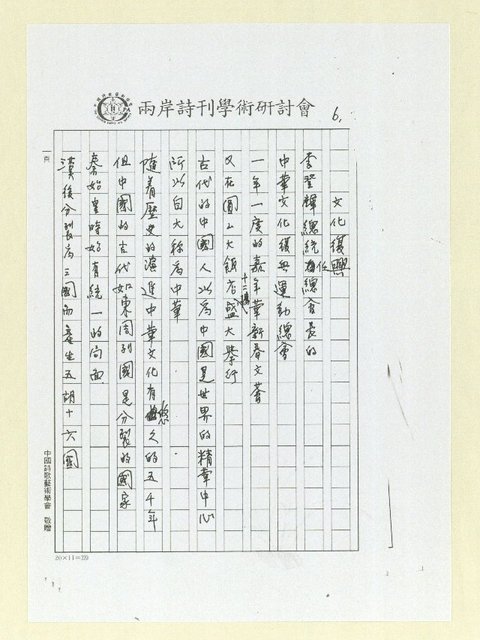 兩岸詩刊學術研討會
6.
文化復興
李登輝總統任總會長的
中華文化復興運動總會
一年一度的嘉年華新春文薈
又在圓山大飯店十二樓盛大舉行
古代的中國人以為中國是世界的精華中心
所以自大稱為中華
隨着歷史的演進中華文化有悠久的五千年
但中國的古代如東周列國是分裂的國家
秦始皇時始有統一的局面
漢後分裂為三國而產生五胡十六國
頁
中國詩歌藝術學會 敬贈
20×11=220